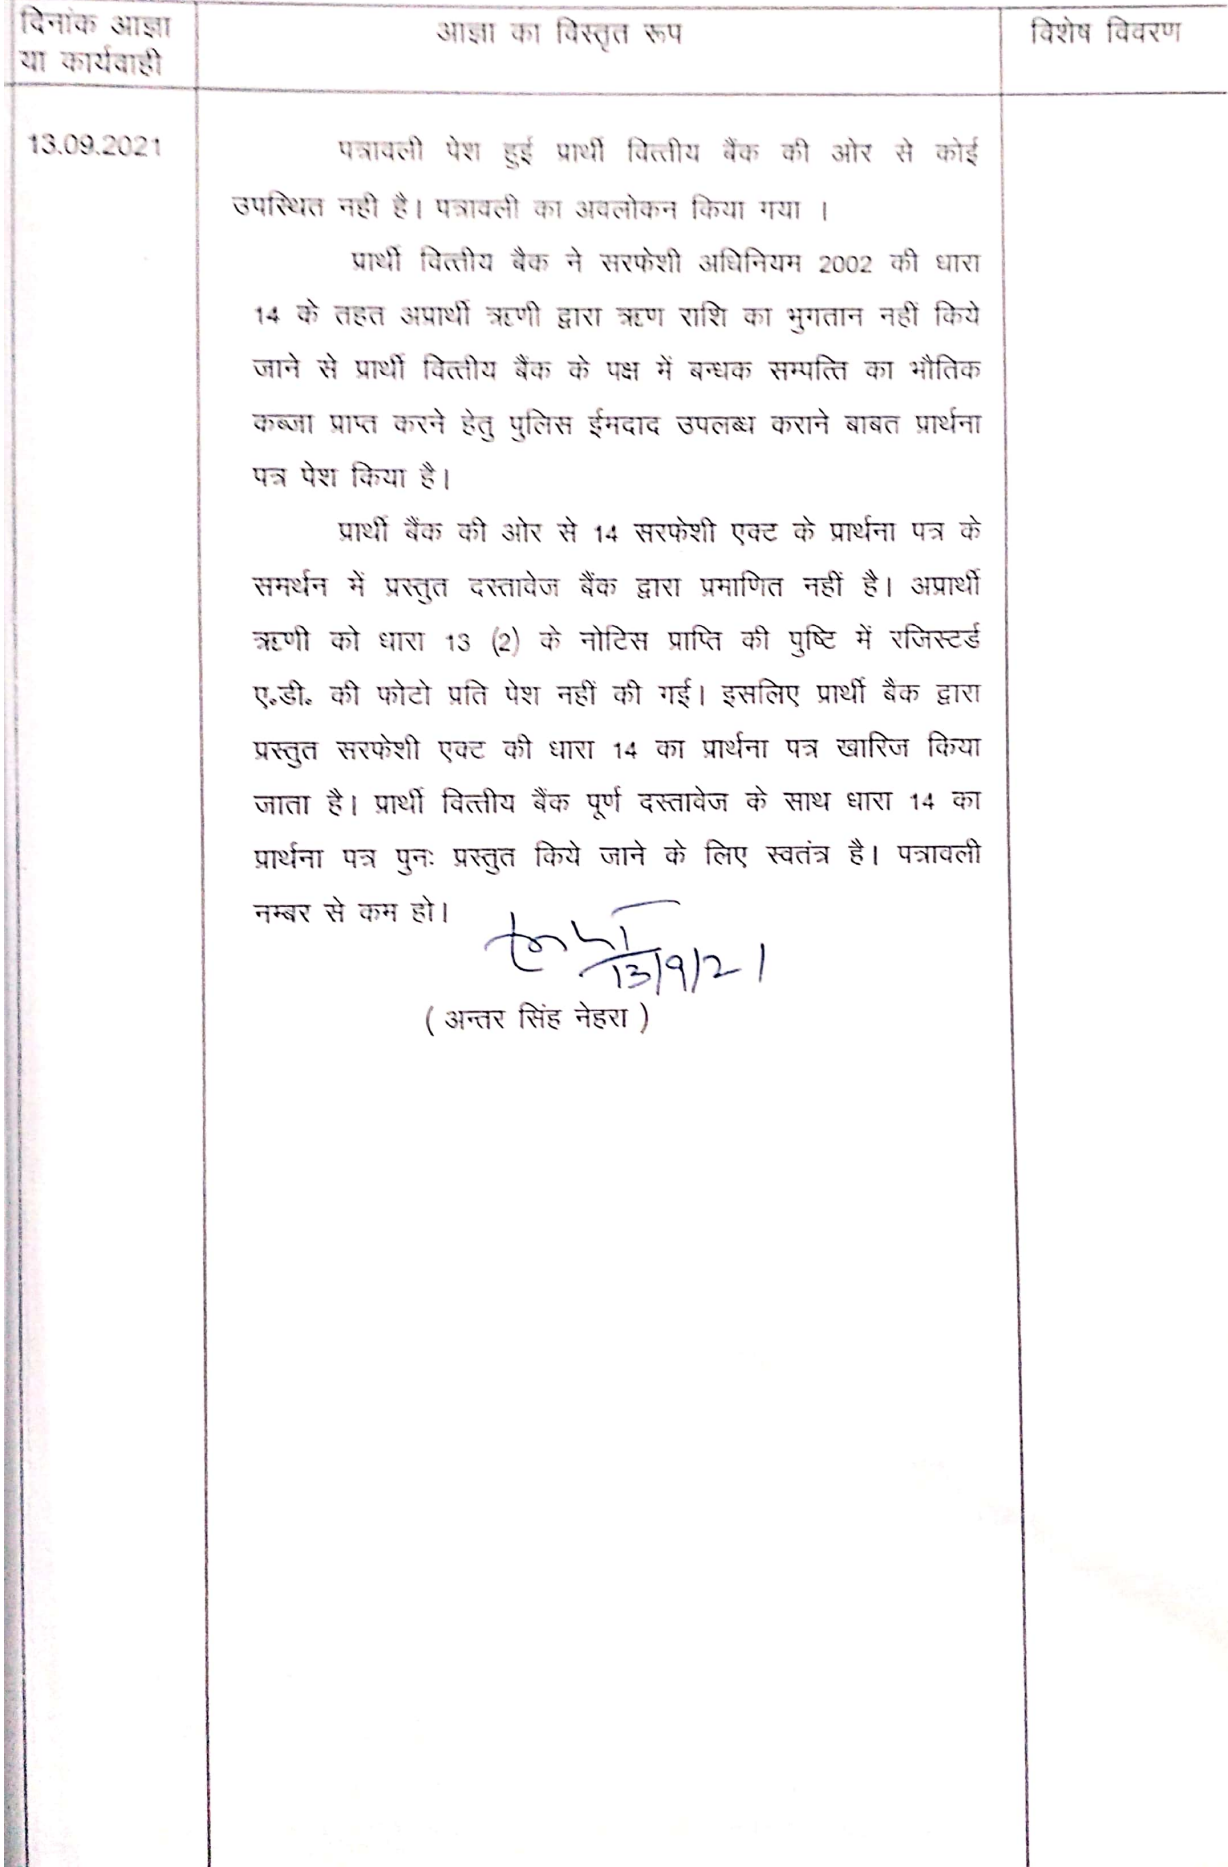 दिनांक आज्ञा
या कार्यवाही
आज्ञा का विस्तृत रूप
विशेष विवरण
13.09.2021
पत्रावली पेश हुई प्रार्थी वित्तीय बैंक की ओर से कोई
उपस्थित नही है। पत्रावली का अवलोकन किया गया ।
प्रार्थी वित्तीय बैक ने सरफेशी अधिनियम 2002 की धारा
14 के तहत अप्रार्थी ऋणी द्वारा ऋण राशि का भुगतान नहीं किये
जाने से प्रार्थी वित्तीय बैंक के पक्ष में बन्धक सम्पत्ति का भौतिक
कब्जा प्राप्त करने हेतु पुलिस ईमदाद उपलब्ध कराने बाबत प्रार्थना
पत्र पेश किया है।
प्रार्थी बैंक की ओर से 14 सरफेशी एक्ट के प्रार्थना पत्र के
समर्थन में प्रस्तुत दस्तावेज बैंक द्वारा प्रमाणित नहीं है। अप्रार्थी
ऋणी को धारा 13 (2) के नोटिस प्राप्ति की पुष्टि में रजिस्टर्ड
ए॰डी॰ की फोटो प्रति पेश नहीं की गई। इसलिए प्रार्थी बैक द्वारा
प्रस्तुत सरफेशी एक्ट की धारा 14 का प्रार्थना पत्र खारिज किया
जाता है। प्रार्थी वित्तीय बैंक पूर्ण दस्तावेज के साथ धारा 14 का
प्रार्थना पत्र पुनः प्रस्तुत किये जाने के लिए स्वतंत्र है। पत्रावली
नम्बर से कम हो।
13/9/21
( अन्तर सिंह नेहरा )